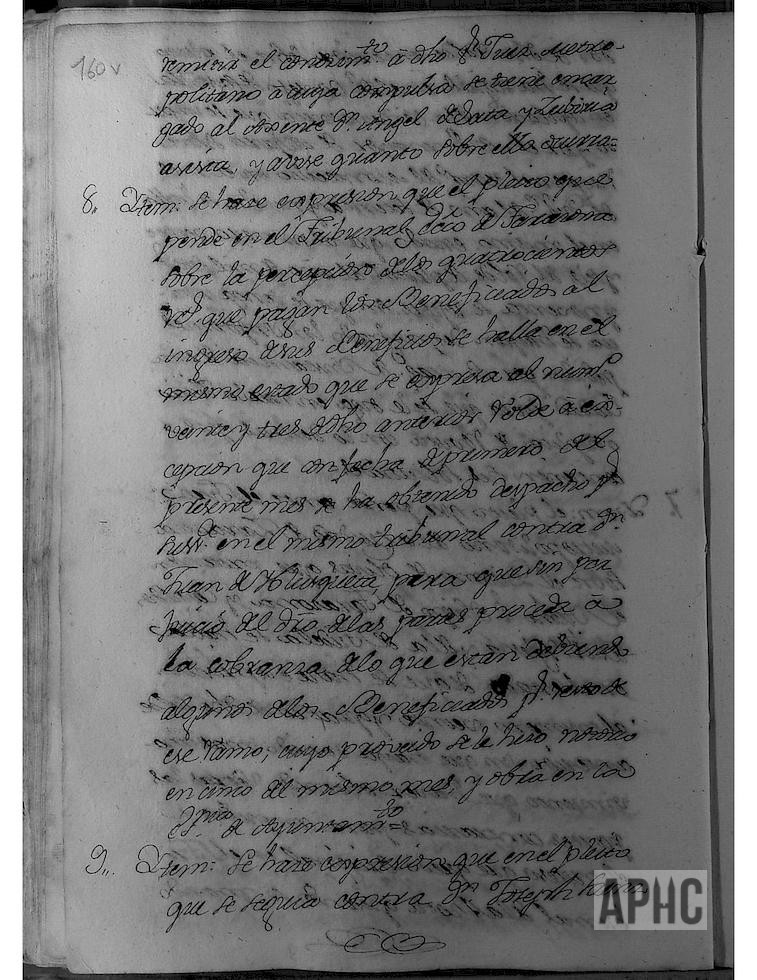 160v
remitir el contenim.to â dho S.r Juez Metro-
politano â cuya compulsa se tiene encar
gado al Agente D.n Angel de
asista, y avise quanto sobre ello ocurra=
8,, Ytem: Se hace expresion que el pleito que
pende en el Tribunal de Tarazona
sobre la percepcion de los quatrocientos
r.s que pagan los Beneficiados al
ingreso de sus Beneficios, se halla en el
mismo estado que se expresa al num.o
veinte y tres de dho anterior Volde â ex-
cepcion que con fecha de primero del
presente mes se ha obtenido despacho p.r
en el mismo tribunal contra D.n
Juan de para que sin per
juicio del dro de las partes proceda â
la cobranza de lo que estan debiendo
algunos de los Beneficiados p.r resto de
ese Ramo, cuyo proveido se le hizo notorio
en cinco del mismo mes, y obra en la
de Ayuntam.to=
9,, Ytem: Se hace expresion que en el pleito
que se seguia contra D.n Joseph
APHC